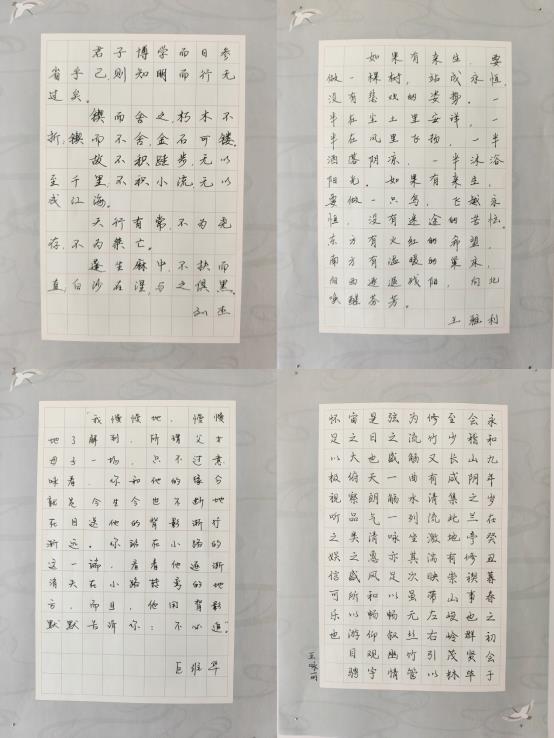 君子博学而日参
省乎己,则知明而行无
过矣。
锲而舍之,朽木不
折;锲而不舍,金石可镂。
故不积跬步,无以
至千里,不积小流,无以
成江海。
天行有常,不为尧
存,不为桀亡。
蓬生麻中,不扶而
直;白沙在涅,与之俱黑。
刘杰
如果有来生,要
做一棵树,站成永恒,
没有悲欢的姿势。一
半在尘土里安详,一
半在风里飞扬,一半
洒落阴凉,一半沐浴
阳光。如果有来生,
要做一只鸟,飞越永
恒,没有迷途的苦恼。
东方有火红的希望,
南方有温暖的巢床,
向西逐退残阳,向北
唤醒芬芳。
王雅利
“我慢慢地、慢慢
地了解到,所谓父女
母子一场,只不过意
味着,你和他的缘分
就是今生今世不断地
在目送他的背影渐行
渐远。你站在小路的
这一端,看着他逐渐
消失在小路转弯的地
方,而且,他用背影
默默告诉你:不必追”
巨雅华
永和九年岁在癸丑暮春之初会于
会稽山阴之兰亭修禊事也群贤毕
至少长咸集此地有崇山峻岭茂林
修竹又有清流激湍映带左右引以
为流觞曲水列坐其次虽无丝竹管
弦之盛一觞一咏亦足以畅叙幽情
是日也天朗气清惠风和畅仰观宇
宙之大俯察品类之盛所以游目骋
怀足以极视听之娱信可乐也
王咏